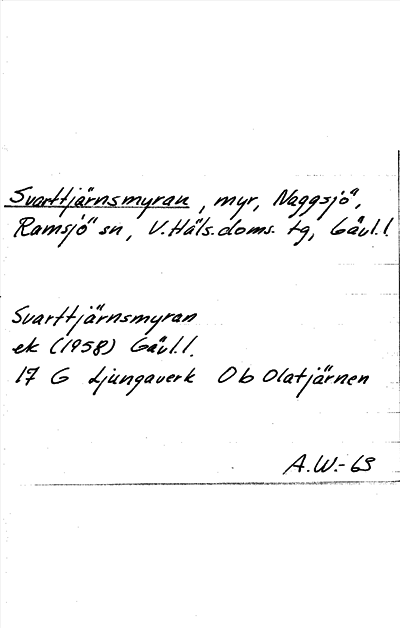 Svarttjärnsmyran, myr, Naggsjö,
Ramsjö sn, V. Häls. doms. tg, Gävl. l.
Svarttjärnsmyran
ek (1958) Gävl. l.
17 G Ljungaverk Ob Olatjärnen
A.W.-69